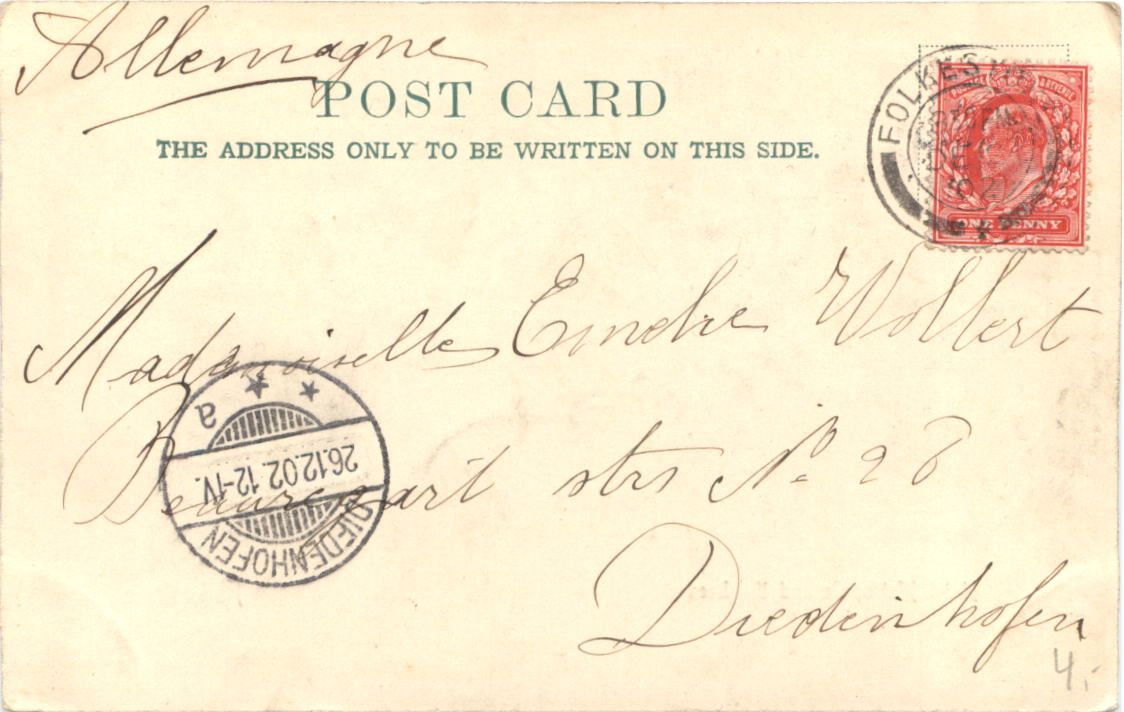 Allemagne
POST CARD
THE ADDRESS ONLY TO BE WRITTEN ON THIS SIDE.
FOLKES
ONE PENNY
Mademoiselle Wollert
Beauregart strs No 28
Diedenhofen
a
26.12.02. 12-1V.
DIEDENHOFEN
4.-